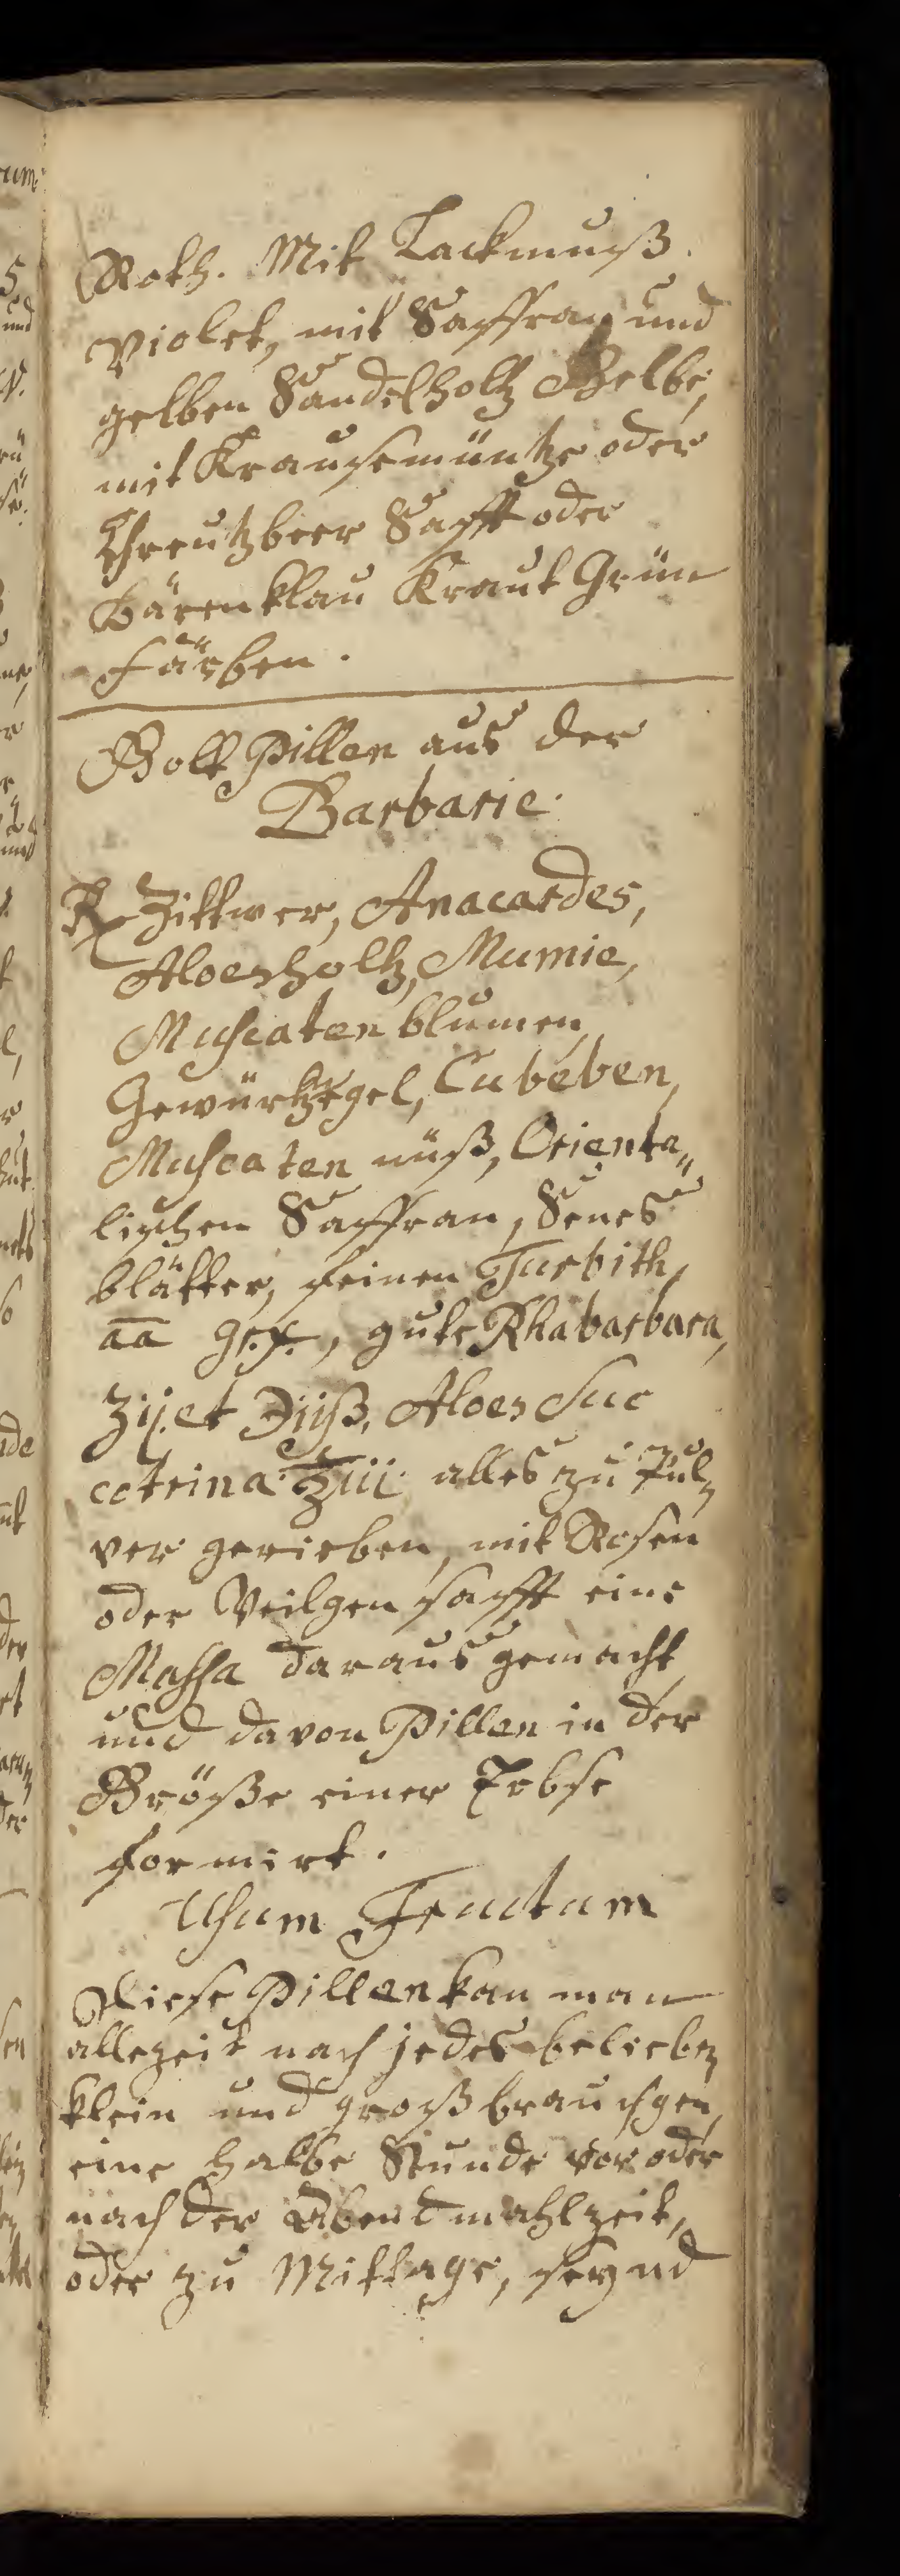 Roth. Mit Lackmuß
Violet, mit Saffran und
gelben Sandelholtz Gelbe,
mit Krausemüntze oder
Chreutzbeer Safft oder
Bärenklau Kraut Grün
färben.
Golt Pillen aus der
Barbarie.
℞ Zittwer, Anacardes,
Aloesholtz, Mumie,
Muscaten blumen,
Gewürtznegel, Cubeben,
Muscaten nüß, Orienta„
lischen Saffran, Senes
blätter, feinen Turbith,
āā gr.x., gute Rhabarbara,
Ʒij. et ℈ijß, Aloes Suc
cotrina ℥iii alles zu Pul„
ver gerieben, mit Rosen
oder Veilgen safft eine
Massa daraus gemacht
und davon Pillen in der
Größe einer Erbse
formirt.
Usum Fructum
Diese Pillen kan man
allezeit nach jedes belieben
klein und groß brauchgen,
eine halbe Stunde vor oder
nach der Abendmahlzeit,
oder zu Mittage, seynd
um
5
und